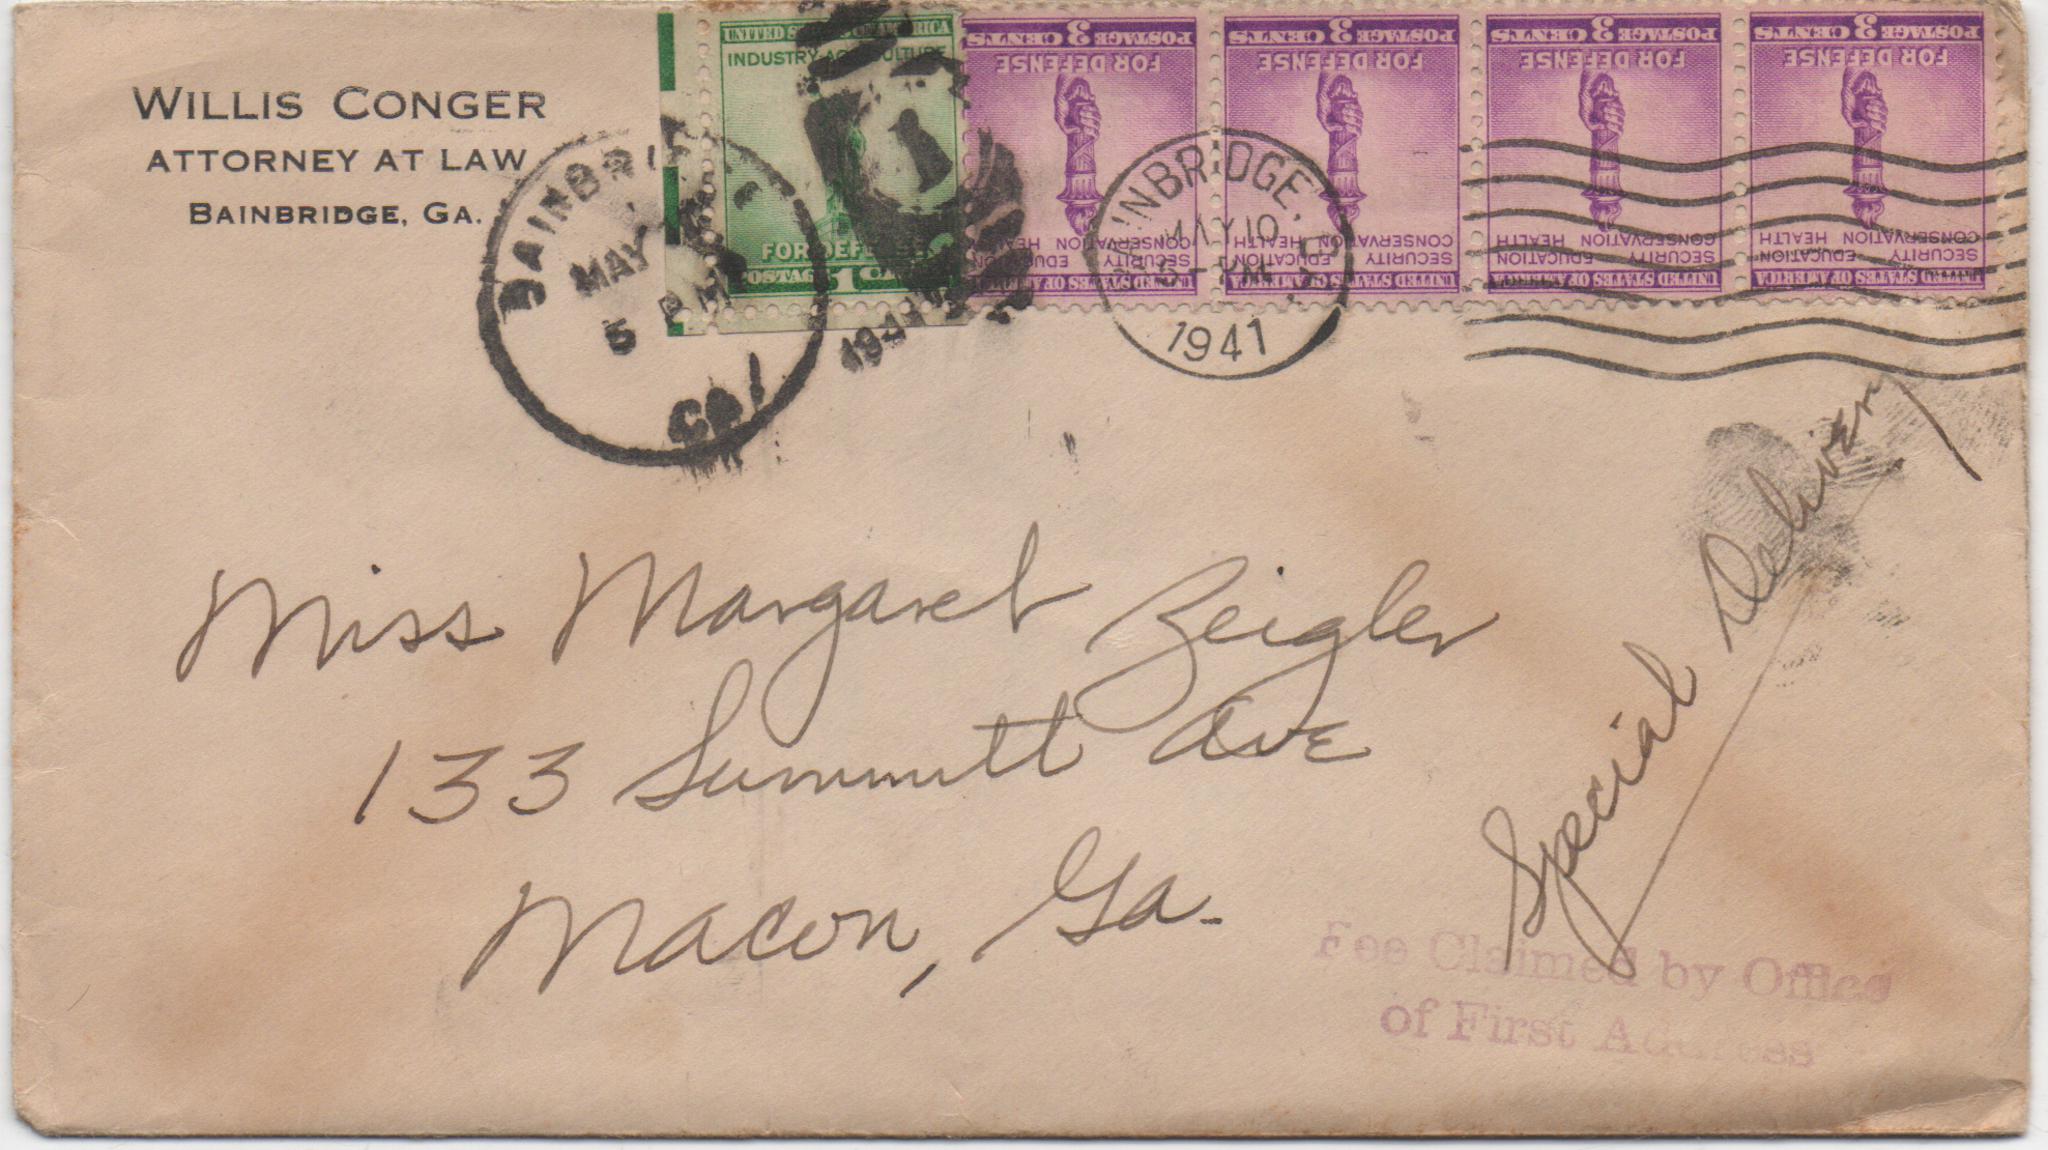 WILLIS CONGER
ATTORNEY AT LAW
BAINBRIDGE, GA.
UNITED STATES OF AMERICA
INDUSTRY AGRICULTURE
FOR DEFENSE
POSTAGE 1
POSTAGE 3 CENTS
FOR DEFENSE
SECURITY EDUCATION
CONSERVATION HEALTH
UNITED STATES OF AMERICA
POSTAGE 3 CENTS
FOR DEFENSE
SECURITY EDUCATION
CONSERVATION HEALTH
UNITED STATES OF AMERICA
POSTAGE 3 CENTS
FOR DEFENSE
SECURITY EDUCATION
CONSERVATION HEALTH
UNITED STATES OF AMERICA
POSTAGE 3 CENTS
FOR DEFENSE
SECURITY EDUCATION
CONSERVATION HEALTH
UNITED STATES OF AMERICA
BAINBRIDGE
MAY
5 PM
1941
GA.
BAINBRIDGE,
MAY 10
5 - PM
1941
Special Delivery
Miss Margaret Zeigler
133 Summitt Ave
Macon, Ga.
Fee Claimed by Office
of First Address